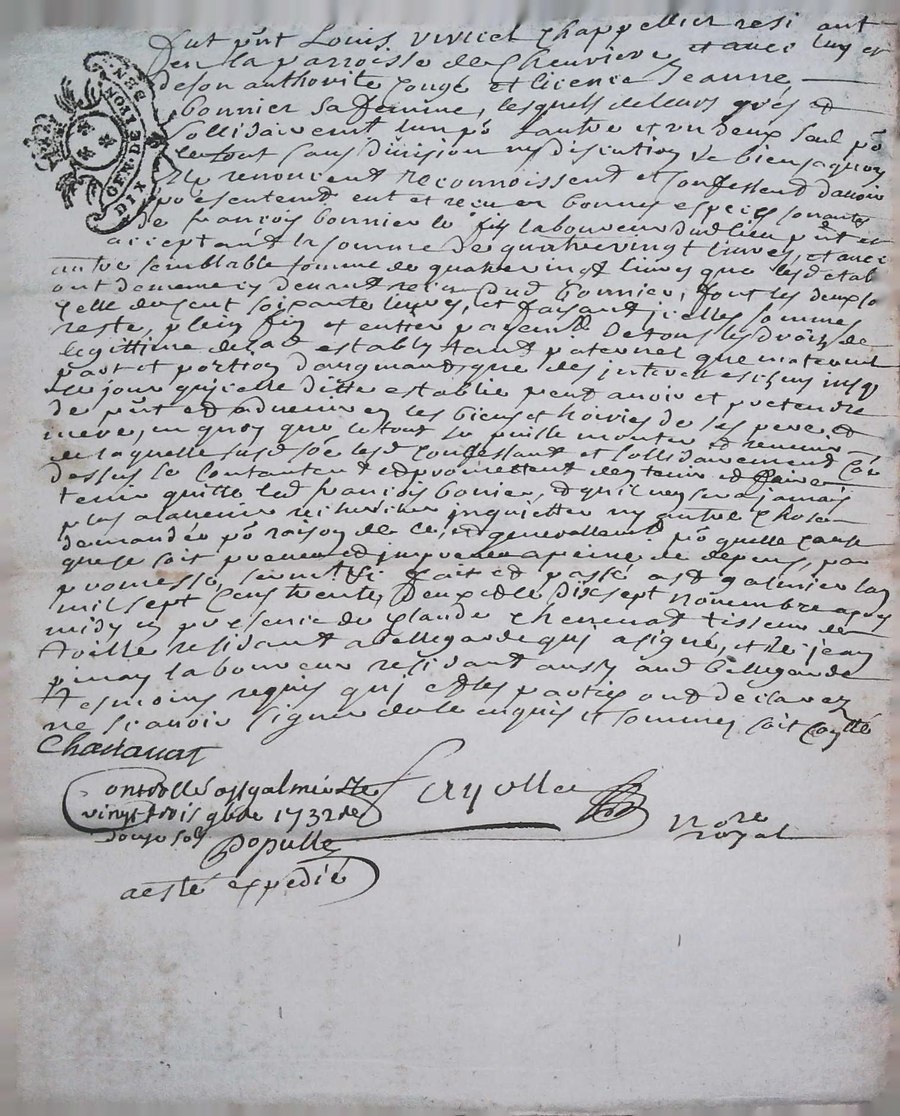 GEN. DE LION
DIX DEN
fut pnt Louis vivict chappellier resi ant
en la parroisse de chenviere et avec luy et
de son authorité congé et licence Jeanne
bonnier sa femme, lesquels de leurs grés et
sollidairement lun po lautre et un deux seul po
le tout sans division ny discution de biens a quoy
ils renoncent reconnoissent et confessent davoir
presentement eut et receu en bonnes especes sonantes
de françois bonnier le fils laboureur dud lieu pnt et
acceptant la somme de quatrevingt livres et avec
autre semblable somme de quatrevingt livres que lesd establ
ont de mesme cy devant receu dud bonnier, font les deux so
celle de cent soixante livres, et faysant icelles sommes
reste, plein fin et entier payement de tous les droits de
legittime de lad establye tant paternel que maternel
part et portion daugmant, que des interest eschus jusq
ce jour qu'icelle ditte establie peut avoir et pretendre
de pnt et advenir es les biens et hoiries de ses pere et
mere, en quoy que le tout se puisse monter et revenir
de laquelle susd so les d confessant et sollidairement con
dessus se contantent et promettent den tenir et faire
tenir quitte led françois bonier, et qu'il ne sera jamais
plus a ladvenir recherché inquietter ny autre chose
demandée po raison de ce, et generallement po quelle cause
que se soit preveue et impreveue a peine de depens, par
promesse, serment &c fait et passé a st galmier lan
mil sept cens trente deux et le dixsept novembre apres
midy en presence de claude chenenat tisseur de
toille residant a bellegarde qui a signé, et de jean
pinay laboureur residant aussy aud bellegarde
tesmoins requis qui et les parties ont declarez
ne scavoir signer de le enquis et sommez soit contlé
Chanauat
controllé a st galmier le
vingt trois 9bre 1732 de
douze sols
Populle
Fayolle
Nore
royal
a esté expedié